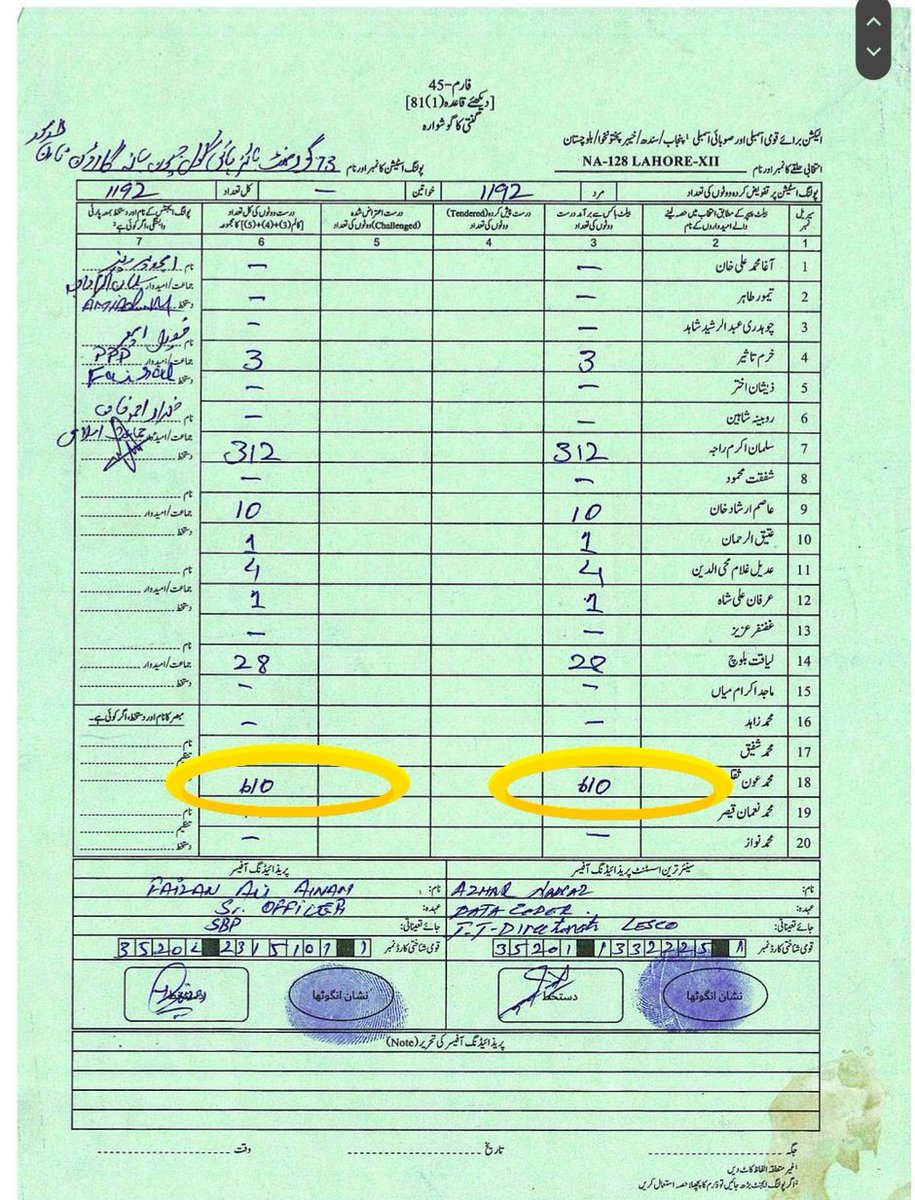 فارم-45
[دیکھئے قاعدہ (1)81]
گنتی کا گوشوارہ
الیکشن برائے قومی اسمبلی اور صوبائی اسمبلی پنجاب/سندھ/خیبر پختونخوا/بلوچستان
انتخابی حلقے کا نمبر اور نام NA-128 LAHORE-XII پولنگ اسٹیشن کا نمبر اور نام 73 گورنمنٹ ہائی سکول
پولنگ اسٹیشن پر تفویض کردہ ووٹوں کی تعداد مرد 1192 خواتین — کل تعداد 1192
سیریل نمبر بیلٹ پیپر کے مطابق انتخاب میں حصہ لینے والے امیدواروں کے نام بیلٹ باکس سے برآمد درست ووٹوں کی تعداد درست پیش کردہ (Tendered) ووٹوں کی تعداد درست اعتراض شدہ (Challenged) ووٹوں کی تعداد درست ووٹوں کی کل تعداد [کالم (3)+(4)+(5) کا مجموعہ] پولنگ ایجنٹس کے نام اور دستخط بمعہ پارٹی وابستگی، اگر کوئی ہے
1 2 3 4 5 6 7
1 آغا محمد علی خان — — نام
جماعت/امیدوار
2 تیمور طاہر — — دستخط AMJAD
3 چوہدری عبدالرشید شاہد — —
نام
4 خرم تاثیر 3 3 جماعت/امیدوار PPP
5 ذیشان اختر — — دستخط Faisal
6 روبینہ شاہین — — نام
جماعت/امیدوار جماعت اسلامی
7 سلمان اکرم راجہ 312 312 دستخط
8 شفقت محمود — — نام
9 عاصم ارشاد خان 10 10 جماعت/امیدوار
10 عتیق الرحمان 1 1 دستخط
11 عدیل غلام محی الدین 4 4 نام
جماعت/امیدوار
12 عرفان علی شاہ 1 1 دستخط
13 غضنفر عزیز — — نام
14 لیاقت بلوچ 28 28 جماعت/امیدوار
15 ماجد اکرام میاں — — دستخط
16 محمد زاہد — — مبصر کا نام اور دستخط، اگر کوئی ہے۔
17 محمد شفیق نام
تنظیم
18 محمد عون 610 610
19 محمد نعمان قیصر نام
تنظیم
20 محمد نواز — — دستخط
سینئر ترین اسسٹنٹ پریذائیڈنگ آفیسر پریذائیڈنگ آفیسر
نام: AZHAR NAWAZ نام: FAIZAN ALI
عہدہ: DATA CODER. عہدہ: Sr. OFFICER
جائے تعیناتی: I.T-Directorate LESCO جائے تعیناتی: SBP
قومی شناختی کارڈ نمبر 35201 1332225 قومی شناختی کارڈ نمبر 35202 2315101 1
نشان انگوٹھا دستخط نشان انگوٹھا دستخط
پریذائیڈنگ آفیسر کی تحریر (Note)
جگہ تاریخ وقت
غیر متعلقہ الفاظ کاٹ دیں
اگر پولنگ ایجنٹ بڑھ جائیں تو فارم کا پچھلا حصہ استعمال کریں